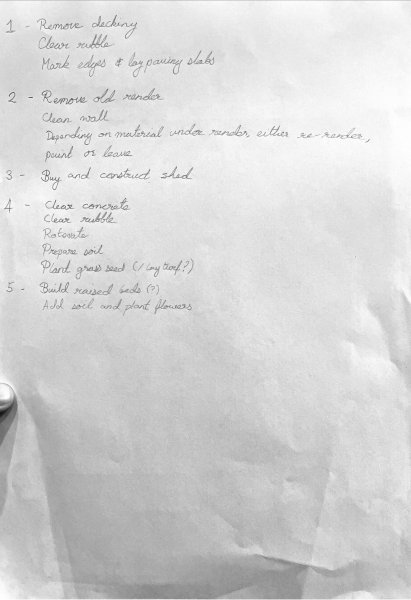 1 - Remove decking
Clear rubble
Mark edges & lay paving slabs
2 - Remove old render
Clean wall
Depending on material under render, either re-render,
paint or leave
3 - Buy and construct shed
4 - Clear concrete
Clear rubble
Rotovate
Prepare soil
Plant grass seed (/ lay turf?)
5 - Build raised beds (?)
Add soil and plant flowers